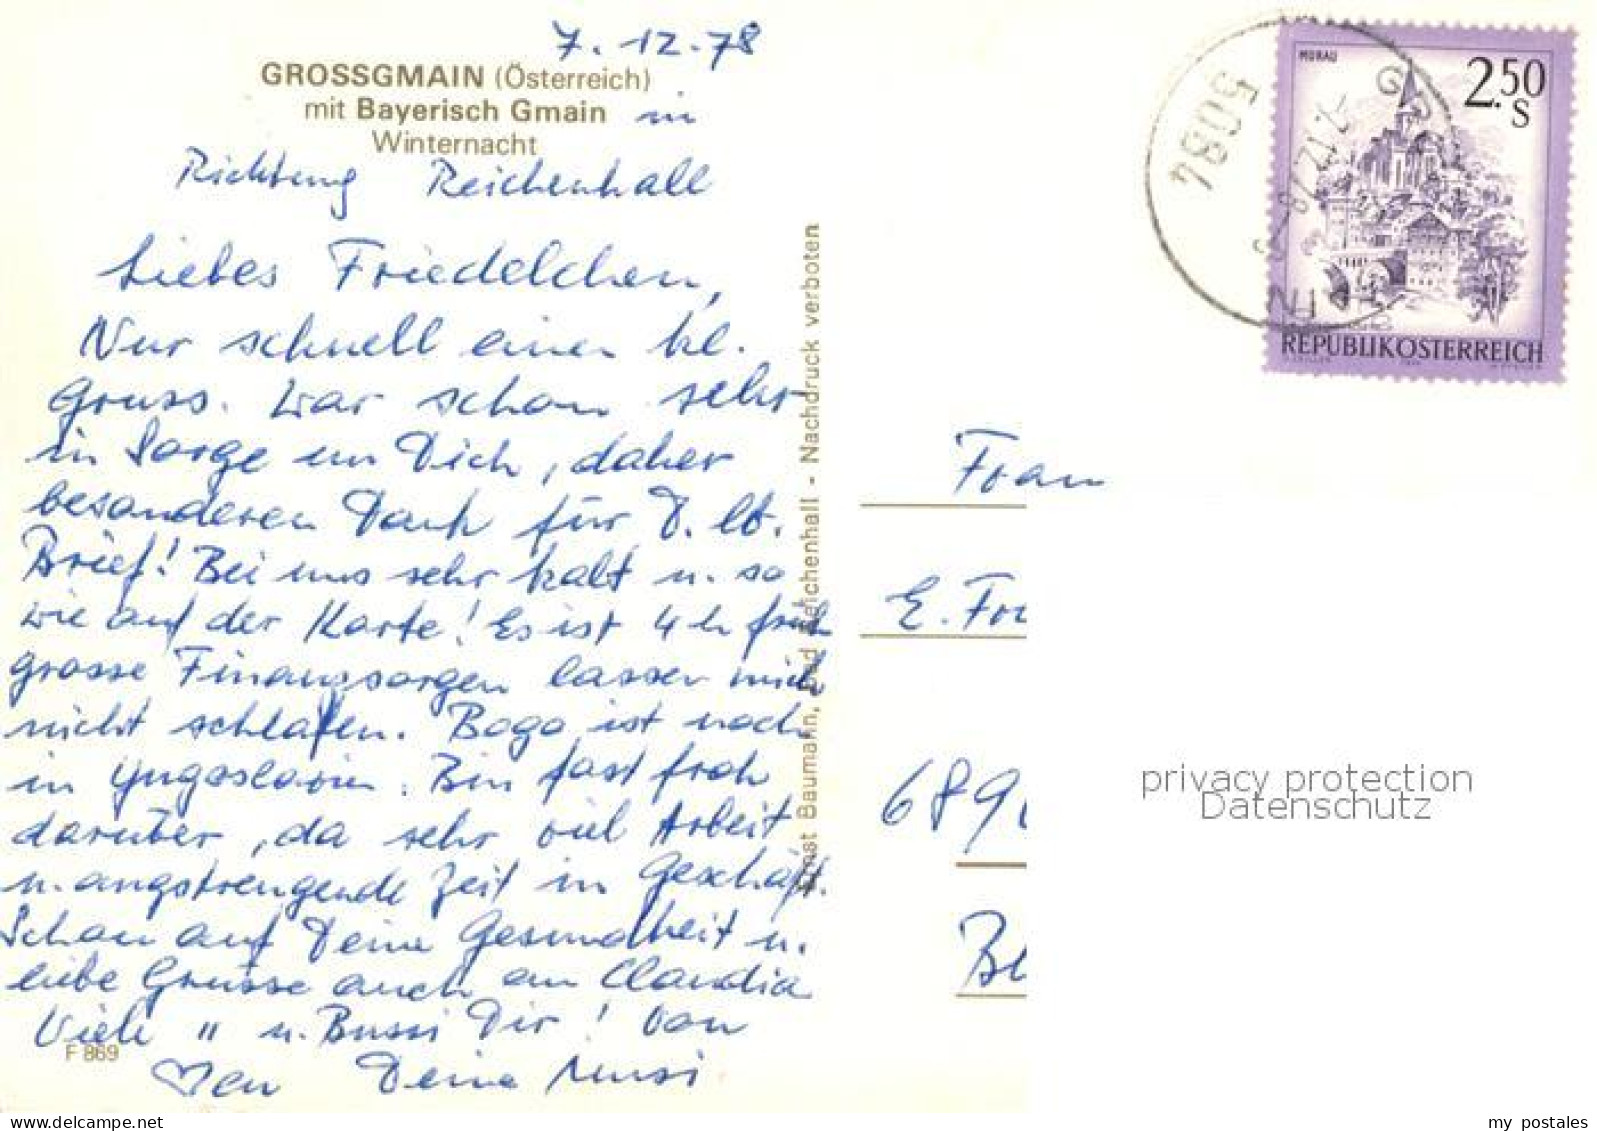 7. 12. 78
GROSSGMAIN (Österreich)
mit Bayerisch Gmain in
Winternacht
Richtung Reichenhall
Liebes Friedelchen,
Nur schnell einen kl.
Gruss. War schon sehr
in Sorge um Dich, daher
besonderen Dank für D. lb.
Brief! Bei uns sehr kalt u. so
wie auf der Karte! Es ist 4 h früh
grosse Finanzsorgen lassen mich
nicht schlafen. Bogo ist noch
in Yugoslavien. Bin fast froh
darüber, da sehr viel Arbeit
u. angstrengende Zeit im Geschäft.
Schau auf Deine Gesundheit u.
liebe Grüsse auch an Claudia
Viele " u. Bussi Dir! Von
F 869
♡en Deine Musi
Ernst Baumann, Bad Reichenhall - Nachdruck verboten
5084
-7.12.78
MURAU
2.50
S
REPUBLIK ÖSTERREICH
Frau
E. Fr
689
Bl
privacy protection
Datenschutz
https://www.delcampe.net
my_postales